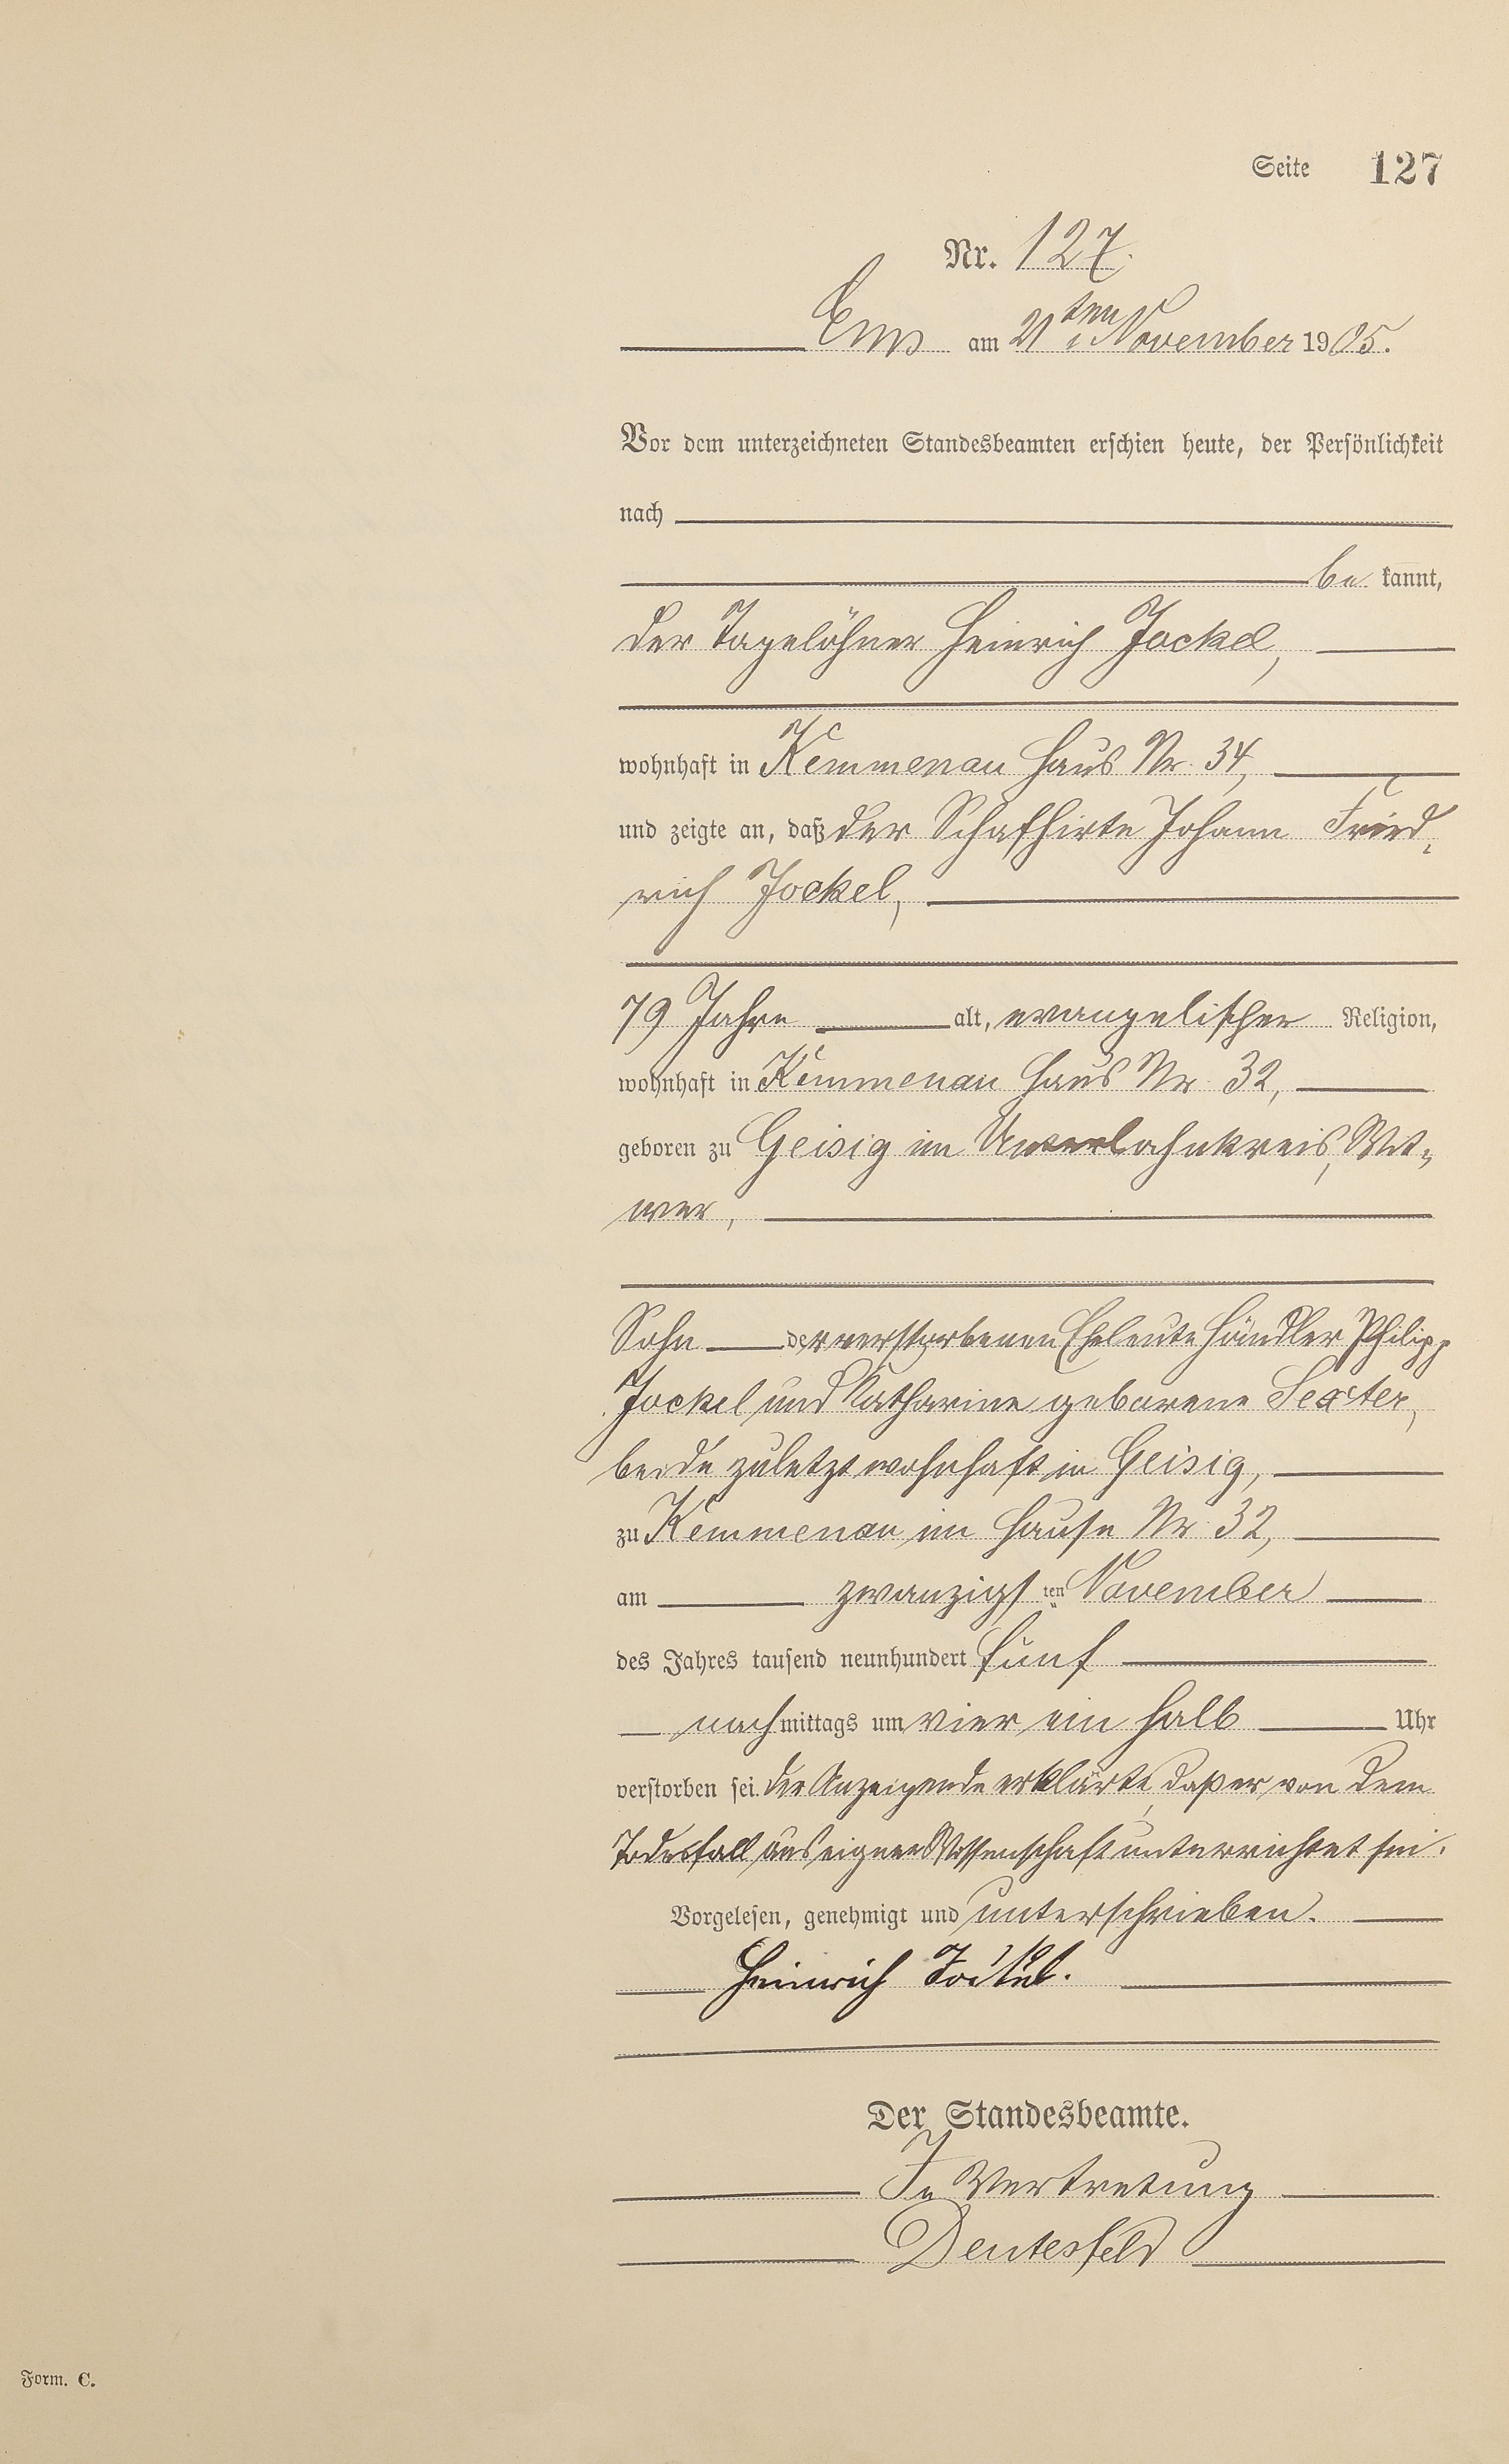 Seite 127
Nr. 127.
Ems am 21ten November 1905.
Vor dem unterzeichneten Standesbeamten erschien heute, der Persönlichkeit
nach
be kannt,
der Tagelöhner Heinrich Jockel,
wohnhaft in Kemmenau Haus Nr. 34,
und zeigte an, daß der Schafhirte Johann Fried-
rich Jockel,
79 Jahre alt, evangelischer Religion,
wohnhaft in Kemmenau Haus Nr. 32,
geboren zu Geisig im Unterlahnkreis, Wit-
wer,
Sohn der verstorbenen Eheleute Händler Philipp
Jockel und Katharine geborene Sexter,
beide zuletzt wohnhaft in Geisig,
zu Kemmenau im Hause Nr. 32,
am zwanzigsten November
des Jahres tausend neunhundert fünf
nachmittags um vier ein halb Uhr
verstorben sei. Der Anzeigende erklärte, daß er von dem
Todesfall aus eigner Wissenschaft unterrichtet sei.
Vorgelesen, genehmigt und unterschrieben.
Heinrich Jockel.
Der Standesbeamte.
In Vertretung
Deutesfeld
Form. C.